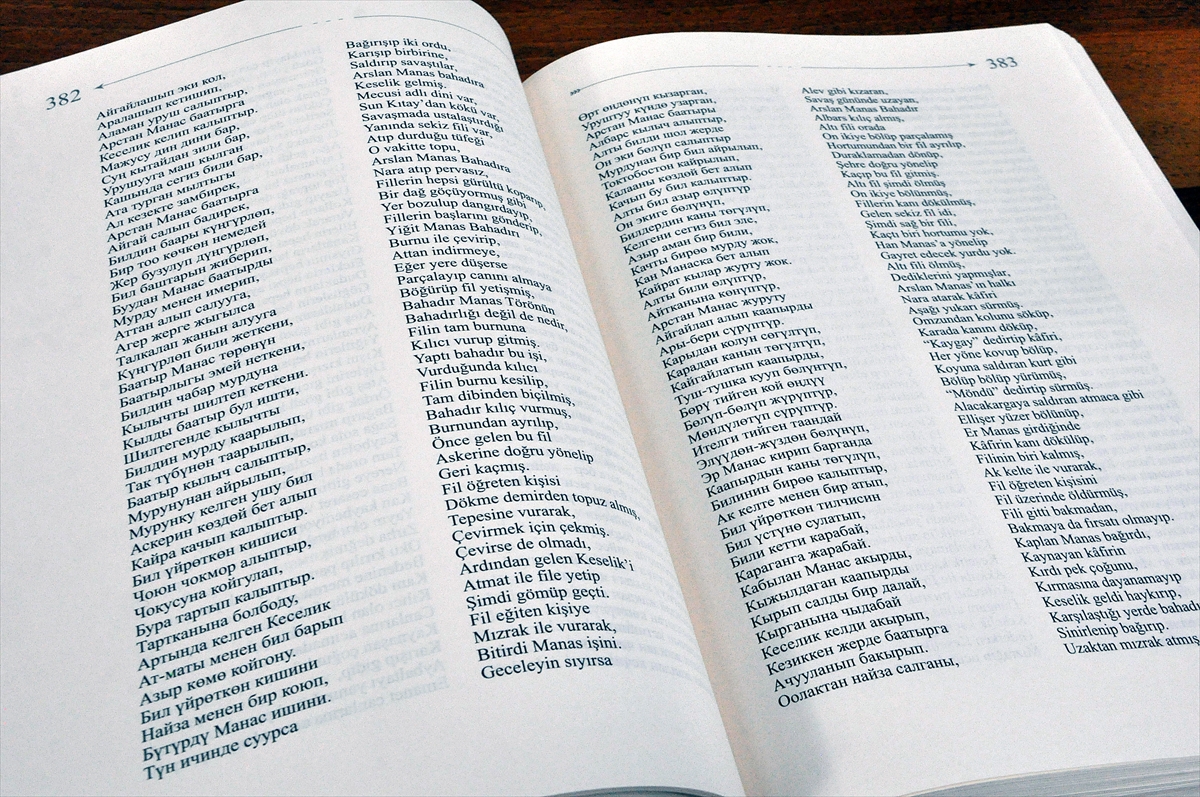 382
Айгайлашып эки кол,
Аралашып кетишип,
Аламан уруш салыптыр,
Арстан Манас баатырга
Кеселик келип калыптыр.
Мажусу дин дини бар,
Сун кытайдан зили бар,
Урушууга маш кылган
Кашында сегиз били бар,
Ата турган мылтыгы
Ал кезекте замбирек,
Арстан Манас баатырга
Айгай салып бадирек,
Билдин баары күңгүрлөп,
Бир тоо көчкөн немедей
Жер бузулуп дүңгүрлөп,
Бил баштарын жиберип,
Буудан Манас баатырды
Мурду менен имерип,
Аттан алып салууга,
Агер жерге жыгылса
Талкалап жанын алууга
Күңгүрлөп били жеткени,
Баатыр Манас төрөнүн
Баатырлыгы эмей неткени,
Билдин чабар мурдуна
Кылычты шилтеп кеткени.
Кылды баатыр бул ишти,
Шилтегенде кылычты
Билдин мурду каарылып,
Так түбүнөн таарылып,
Баатыр кылыч салыптыр,
Мурунунан айрылып,
Мурунку келген ушу бил
Аскерин көздөй бет алып
Кайра качып калыптыр.
Бил үйрөткөн кишиси
Чоюн чокмор алыптыр,
Чокусуна койгулап,
Бура тартып калыптыр.
Тартканына болбоду,
Артында келген Кеселик
Ат-маты менен бил барып
Азыр көмө койгону.
Бил үйрөткөн кишини
Найза менен бир коюп,
Бүтүрдү Манас ишини.
Түн ичинде суурса
Bağırışıp iki ordu,
Karışıp birbirine,
Saldırıp savaştılar,
Arslan Manas bahadıra
Keselik gelmiş.
Mecusi adlı dini var,
Sun Kıtay'dan kökü var,
Savaşmada ustalaştırdığı
Yanında sekiz fili var,
Atıp durduğu tüfeği
O vakitte topu,
Arslan Manas Bahadıra
Nara atıp pervasız,
Fillerin hepsi gürültü koparıp,
Bir dağ göçüyormuş gibi
Yer bozulup dangırdayıp,
Fillerin başlarını gönderip,
Yiğit Manas Bahadırı
Burnu ile çevirip,
Attan indirmeye,
Eğer yere düşerse
Parçalayıp canını almaya
Böğürüp fil yetişmiş,
Bahadır Manas Törönün
Bahadırlığı değil de nedir,
Filin tam burnuna
Kılıcı vurup gitmiş.
Yaptı bahadır bu işi,
Vurduğunda kılıcı
Filin burnu kesilip,
Tam dibinden biçilmiş,
Bahadır kılıç vurmuş,
Burnundan ayrılıp,
Önce gelen bu fil
Askerine doğru yönelip
Geri kaçmış.
Fil öğreten kişisi
Dökme demirden topuz almış,
Tepesine vurarak,
Çevirmek için çekmiş.
Çevirse de olmadı,
Ardından gelen Keselik'i
Atmat ile file yetip
Şimdi gömüp geçti.
Fil eğiten kişiye
Mızrak ile vurarak,
Bitirdi Manas işini.
Geceleyin sıyırsa
383
Өрт өңдөнүп кызарган,
Уруштуу күндө узарган,
Арстан Манас баатыры
Албарс кылыч алыптыр,
Алты билди шол жерде
Он эки бөлүп салыптыр
Мурдунан бир бил айрылып,
Токтобостон кайрылып,
Калааны көздөй бет алып
Качып бу бил калыптыр.
Алты бил азыр өлүптүр
Он экиге бөлүнүп,
Билдердин каны төгүлүп,
Келгени сегиз бил эле,
Азыр аман бир били,
Качты бирөө мурду жок,
Кан Манаска бет алып
Кайрат кылар журту жок.
Алты били өлүптүр,
Айтканына көнүптүр,
Арстан Манас журуту
Айгайлап алып каапырды
Ары-бери сүрүптүр.
Карыдан колун сөгүлтүп,
Карадан канын төгүлтүп,
Кайгайлатып каапырды,
Туш-тушка кууп бөлүнтүп,
Бөрү тийген кой өңдүү
Бөлүп-бөлүп жүрүптүр,
Мөндүлөтүп сүрүптүр.
Ителги тийген таандай
Элүүдөн-жүздөн бөлүнүп,
Эр Манас кирип барганда
Каапырдын каны төгүлүп,
Билинин бирөө калыптыр,
Ак келте менен бир атып,
Бил үйрөткөн тилчисин
Бил үстүнө сулатып,
Били кетти карабай,
Караганга жарабай.
Кабылан Манас акырды,
Кыжылдаган каапырды
Кырып салды бир далай,
Кырганына чыдабай
Кеселик келди акырып,
Кезиккен жерде баатырга
Ачууланып бакырып.
Оолактан найза салганы,
Alev gibi kızaran,
Savaş gününde uzayan,
Arslan Manas Bahadır
Albars kılıç almış,
Altı fili orada
On ikiye bölüp parçalamış
Hortumundan bir fil ayrılıp,
Duraklamadan dönüp,
Şehre doğru yönelip
Kaçıp bu fil gitmiş.
Altı fil şimdi ölmüş
On ikiye bölünmüş,
Fillerin kanı dökülmüş,
Gelen sekiz fil idi,
Şimdi sağ bir fil,
Kaçtı biri hortumu yok,
Han Manas'a yönelip
Gayret edecek yurdu yok.
Altı fili ölmüş,
Dediklerini yapmışlar,
Arslan Manas'ın halkı
Nara atarak kâfiri
Aşağı yukarı sürmüş.
Omzundan kolunu söküp,
Karada kanını döküp,
"Kaygay" dedirtip kâfiri,
Her yöne kovup bölüp,
Koyuna saldıran kurt gibi
Bölüp bölüp yürümüş,
"Möndü" dedirtip sürmüş.
Alacakargaya saldıran atmaca gibi
Ellişer yüzer bölünüp,
Er Manas girdiğinde
Kâfirin kanı dökülüp,
Filinin biri kalmış,
Ak kelte ile vurarak,
Fil öğreten kişisini
Fil üzerinde öldürmüş,
Fili gitti bakmadan,
Bakmaya da fırsatı olmayıp.
Kaplan Manas bağırdı,
Kaynayan kâfirin
Kırdı pek çoğunu,
Kırmasına dayanamayıp
Keselik geldi haykırıp,
Karşılaştığı yerde
Sinirlenip bağırıp.
Uzaktan mızrak